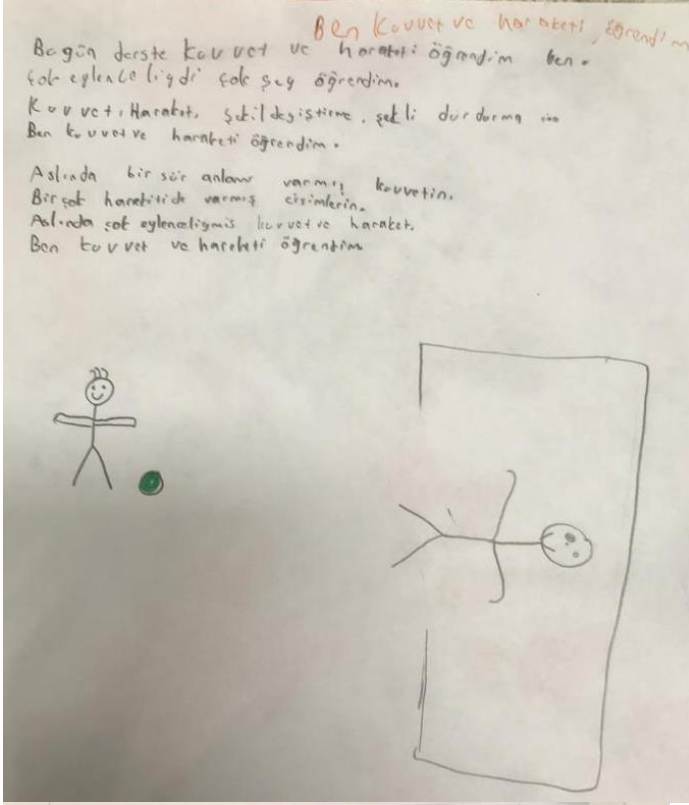 Ben Kuvvet ve haraketi öğrendim
Bugün derste kuvvet ve haraketi öğrendim ben.
Çok eylenceliydi çok şey öğrendim.
Kuvvet, Haraket, şekil değiştirme, şekli durdurma ...
Ben kuvvet ve haraketi öğrendim.
Aslında bir sür anlamı varmış kuvvetin.
Birçok haraketide varmış cisimlerin.
Aslında çok eylenceliymis kuvvet ve haraket.
Ben kuvvet ve hareketi öğrendim